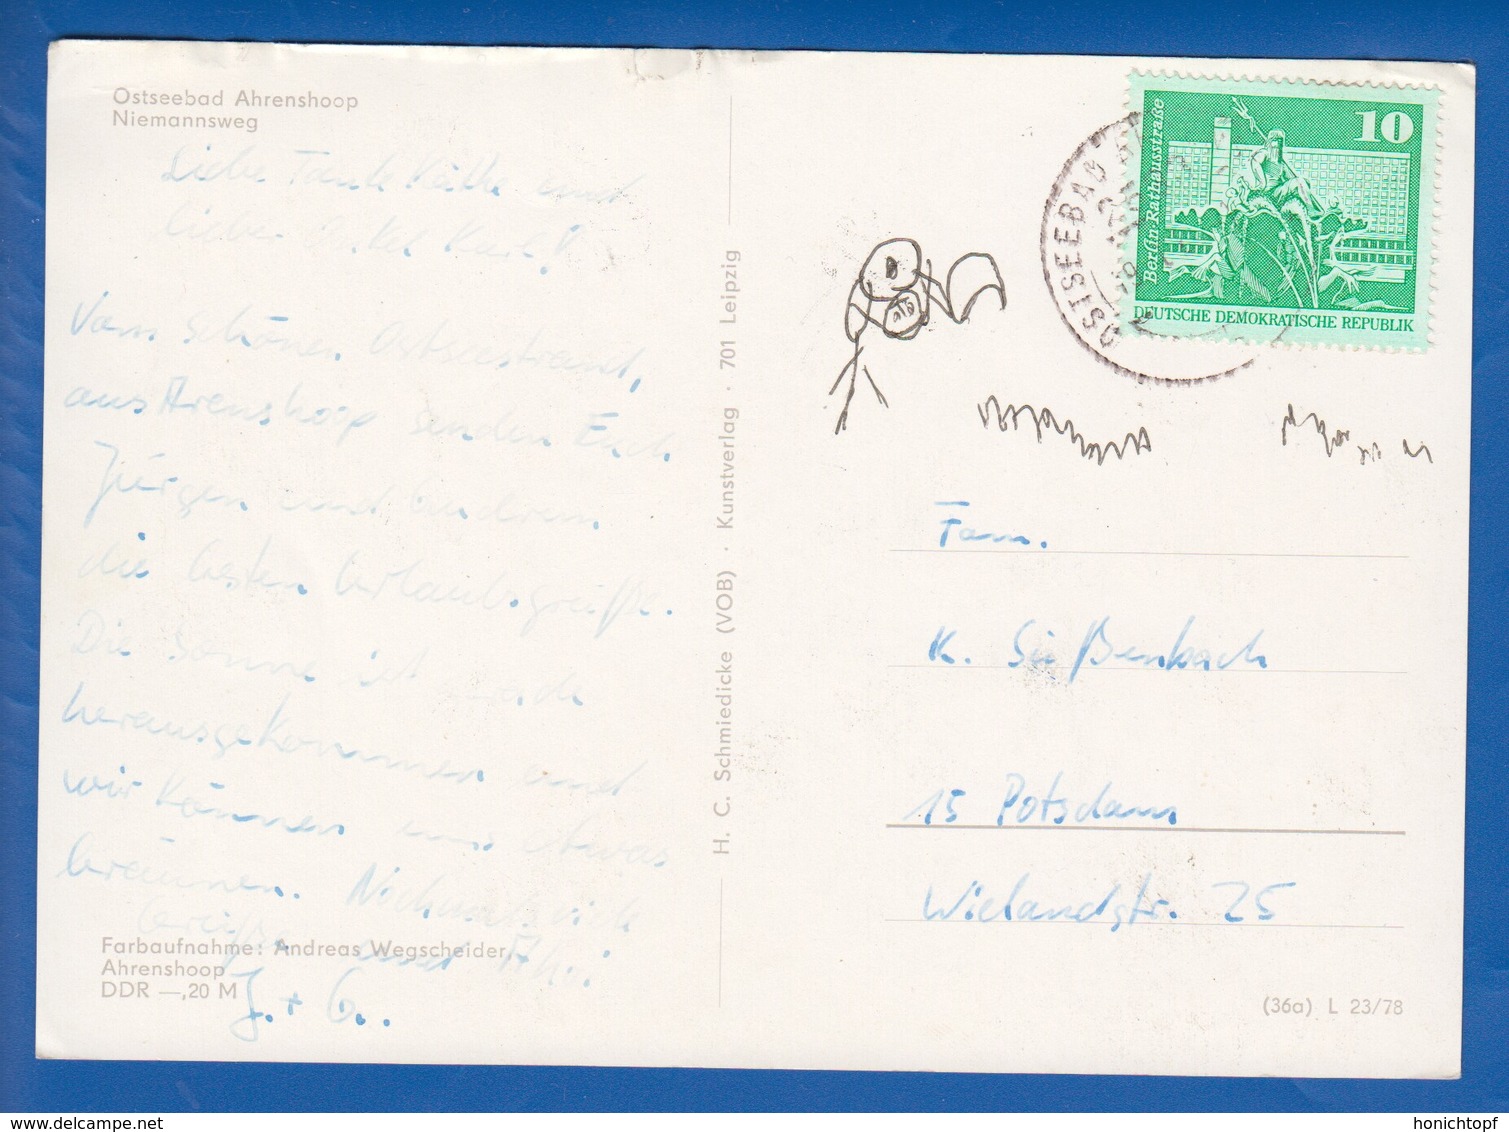 Ostseebad Ahrenshoop
Niemannsweg
Liebe Tante Käthe und
lieber Onkel Kurt!
Vom schönen Ostseestrand,
aus Arenshoop senden Euch
Jürgen und
die besten Urlaubsgrüße.
Die Sonne ist
herausgekommen und
wir können uns etwas
bräunen. Nochmals viele
Grüße und Ahoi
J. + G..
Farbaufnahme: Andreas Wegscheider,
Ahrenshoop
DDR —,20 M
H. C. Schmiedicke (VOB) · Kunstverlag · 701 Leipzig
10
Berlin·Rathausstraße
DEUTSCHE DEMOKRATISCHE REPUBLIK
OSTSEEBAD
Fam.
K. Süßenbach
15 Potsdam
Wielandstr. 25
(36a) L 23/78
honichtopf